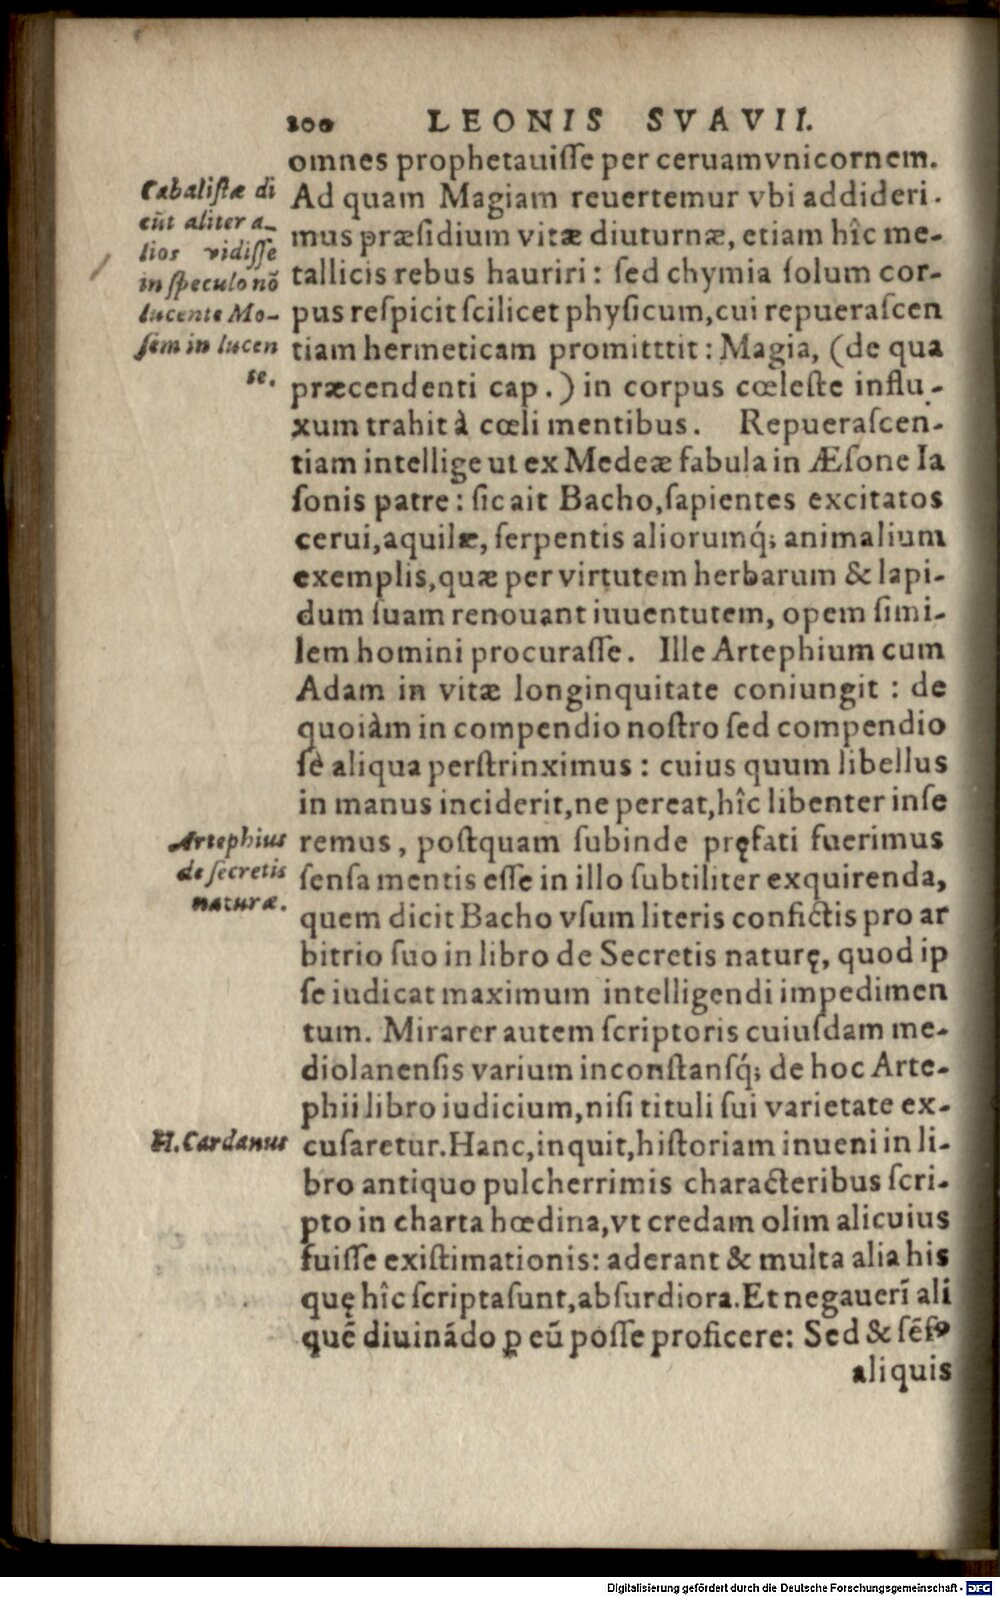 200 LEONIS SVAVII.
omnes prophetauiſſe per ceruamvnicornem.
Ad quam Magiam reuertemur vbi addideri-
mus præſidium vitæ diuturnæ, etiam hîc me-
tallicis rebus hauriri: ſed chymia ſolum cor-
pus reſpicit ſcilicet phyſicum, cui repueraſcen
tiam hermeticam promitttit: Magia, (de qua
præcendenti cap.) in corpus cœleſte influ-
xum trahit à cœli mentibus. Repueraſcen-
tiam intellige ut ex Medeæ fabula in Æſone Ia
ſonis patre: ſic ait Bacho, ſapientes excitatos
cerui, aquilæ, ſerpentis aliorumq́; animalium
exemplis, quæ per virtutem herbarum & lapi-
dum ſuam renouant iuuentutem, opem ſimi-
lem homini procuraſſe. Ille Artephium cum
Adam in vitæ longinquitate coniungit: de
quo iàm in compendio noſtro ſed compendio
ſè aliqua perſtrinximus: cuius quum libellus
in manus inciderit, ne pereat, hîc libenter inſe
remus, poſtquam ſubinde pręfati fuerimus
ſenſa mentis eſſe in illo ſubtiliter exquirenda,
quem dicit Bacho vſum literis confictis pro ar
bitrio ſuo in libro de Secretis naturę, quod ip
ſe iudicat maximum intelligendi impedimen
tum. Mirarer autem ſcriptoris cuiuſdam me-
diolanenſis varium inconſtanſq́; de hoc Arte-
phii libro iudicium, niſi tituli ſui varietate ex-
cuſaretur. Hanc, inquit, hiſtoriam inueni in li-
bro antiquo pulcherrimis characteribus ſcri-
pto in charta hœdina, vt credam olim alicuius
fuiſſe exiſtimationis: aderant & multa alia his
quę hîc ſcripta ſunt, abſurdiora. Et negauerĩ ali
quẽ diuinãdo ꝑ eũ poſſe proficere: Sed & ſẽſꝰ
aliquis
Cabaliſtæ di
cũt aliter a-
lios vidiſſe
in ſpeculo nõ
lucente Mo-
ſem in lucen
te.
Artephius
de ſecretis
naturæ.
H. Cardanus
Digitalisierung gefördert durch die Deutsche Forschungsgemeinschaft - DFG